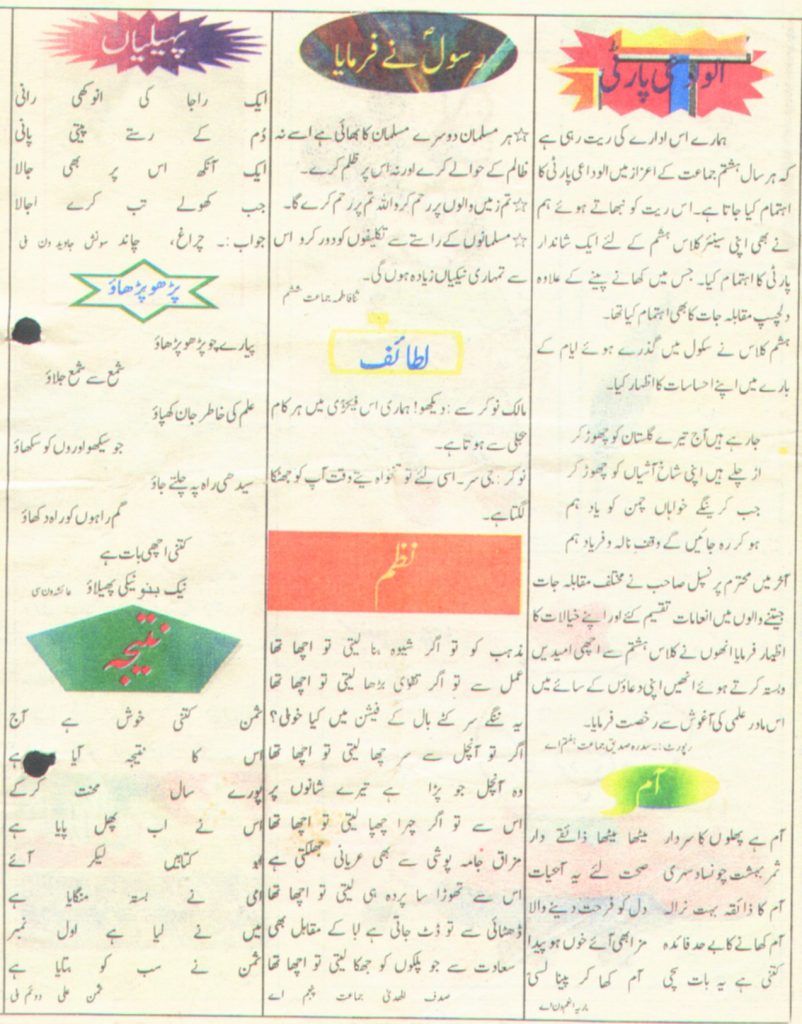 الوداعی پارٹی
ہمارے اس ادارے کی ریت رہی ہے
کہ ہر سال ہشتم جماعت کے اعزاز میں الوداعی پارٹی کا
اہتمام کیا جاتا ہے۔ اس ریت کو نبھاتے ہوئے ہم
نے بھی اپنی سینئر کلاس ہشتم کے لئے ایک شاندار
پارٹی کا اہتمام کیا۔ جس میں کھانے پینے کے علاوہ
دلچسپ مقابلہ جات کا بھی اہتمام کیا تھا۔
ہشتم کلاس نے سکول میں گذرے ہوئے ایام کے
بارے میں اپنے احساسات کا اظہار کیا۔
جارہے ہیں آج تیرے گلستان کو چھوڑ کر
اڑ چلے ہیں اپنی شاخ آشیاں کو چھوڑ کر
جب کرینگے خواہاں چمن کو یاد ہم
ہو کر رہ جائیں گے وقف نالہ و فریاد ہم
آخر میں محترم پرنسپل صاحب نے مختلف مقابلہ جات
جیتنے والوں میں انعامات تقسیم کئے اور اپنے خیالات کا
اظہار فرمایا انھوں نے کلاس ہشتم سے اچھی امیدیں
وبستہ کرتے ہوئے انھیں اپنی دعاؤں کے سائے میں
اس مادر علمی کی آغوش سے رخصت فرمایا۔
رپورٹ:۔ سدرہ صدیق جماعت ہفتم اے
آم
آم ہے پھلوں کا سردار میٹھا میٹھا ذائقے دار
ثمر بہشت چونسا دسہری صحت لئے یہ آبحیات
آم کا ذائقہ بہت نرالہ دل کو فرحت دینے والا
آم کھانے کا بے حد فائدہ مزا بھی آئے خوں ہو پیدا
کتنی ہے یہ بات سچی آم کھا کر پینا لسی
رسولؐ نے فرمایا
☆ ہر مسلمان دوسرے مسلمان کا بھائی ہے اسے نہ
ظالم کے حوالے کرے اور نہ اس پر ظلم کرے۔
☆ تم زمیں والوں پر رحم کرو اللہ تم پر رحم کرے گا۔
☆ مسلمانوں کے راستے سے تکلیفوں کو دور کرو اس
سے تمہاری نیکیاں زیادہ ہوں گی۔
ثنا فاطمہ جماعت ششم
لطائف
مالک نوکر سے: دیکھو! ہماری اس فیکٹری میں ہر کام
بجلی سے ہوتا ہے۔
نوکر: جی سر۔ اسی لئے تو تنخواہ یتے وقت آپ کو جھٹکا
لگتا ہے۔
نظم
مذہب کو تو اگر شیوہ بنا لیتی تو اچھا تھا
عمل سے تو اگر تقوی بڑھا لیتی تو اچھا تھا
یہ ننگے سر کٹے بال کے فیشن میں کیا خوبی؟
اگر تو آنچل سے سر چھپا لیتی تو اچھا تھا
وہ آنچل جو پڑا ہے تیرے شانوں پر
اس سے تو اگر چہرا چھپا لیتی تو اچھا تھا
مزاق جامہ پوشی سے بھی عریانی جھلکتی ہے
اس سے تھوڑا سا پردہ ہی لیتی تو اچھا تھا
ڈھٹائی سے تو ڈٹ جاتی ہے ابا کے مقابل بھی
سعادت سے جو پلکوں کو جھکا لیتی تو اچھا تھا
صدف الھدیٰ جماعت پنجم اے
پہیلیاں
ایک راجا کی انوکھی رانی
دُم کے رستے پیتی پانی
ایک آنکھ اس پر بھی جالا
جب کھولے تب کرے اجالا
جواب:۔ چراغ، چاند سونش جاوید ون بی
پڑھو پڑھاؤ
پیارے بچو پڑھو پڑھاؤ
شمع سے شمع جلاؤ
علم کی خاطر جان کھپاؤ
جو سیکھو اوروں کو سکھاؤ
سیدھی راہ پہ چلتے جاؤ
گم راہوں کو راہ دکھاؤ
کتنی اچھی بات ہے
نیک بنو نیکی پھیلاؤ عائشہ ون سی
نتیجہ
ثمن کتنی خوش ہے آج
اس کا نتیجہ آیا ہے
پورے سال محنت کرکے
اس نے اب پھل پایا ہے
ابو کتابیں لیکر آئے
امی نے بستہ منگایا ہے
میں نے لیا ہے اول نمبر
ثمن نے سب کو بتایا ہے
ثمن علی دوئم بی